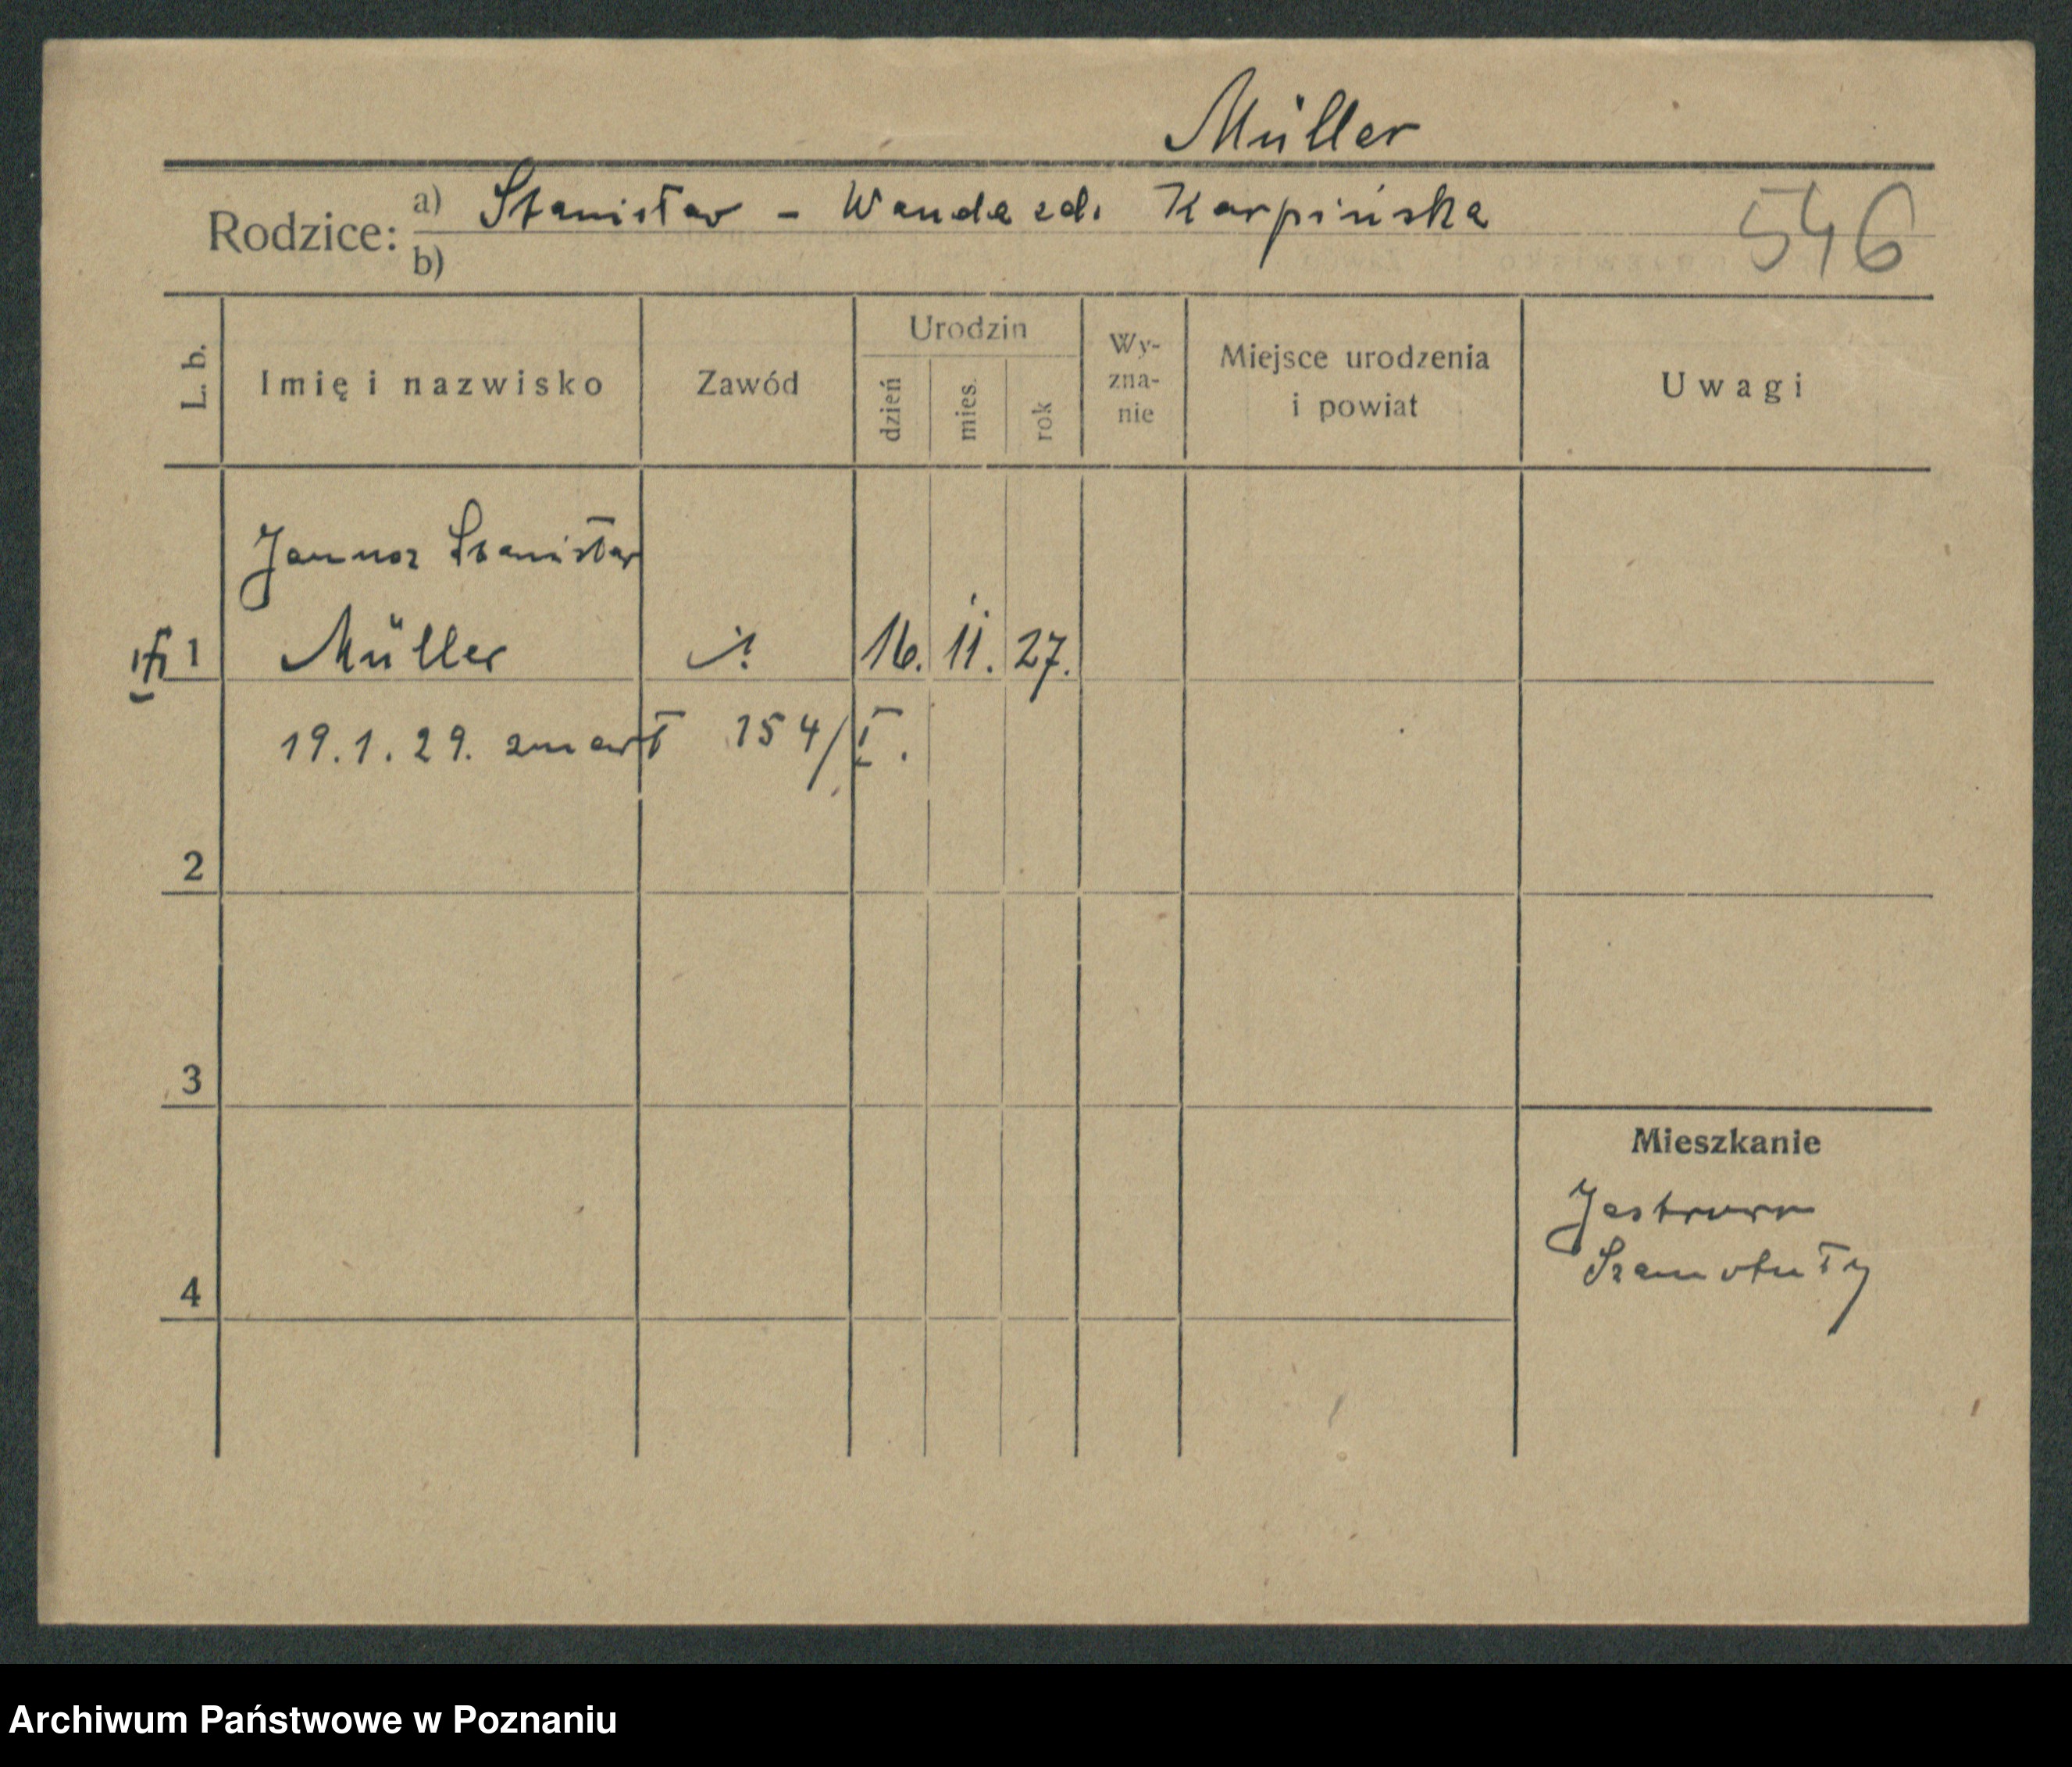 Müller
Rodzice: a) Stanisław - Wanda zd. Karpińska
b)
546
L. b.
Imię i nazwisko
Zawód
Urodzin
dzień
mies.
rok
Wy-
zna-
nie
Miejsce urodzenia
i powiat
Uwagi
Janusz Stanisław
1 Müller 16. 11. 27.
19.1.29. zmarł 154/I.
2
3
4
Mieszkanie
Jastrowo
Szamotuły
Archiwum Państwowe w Poznaniu